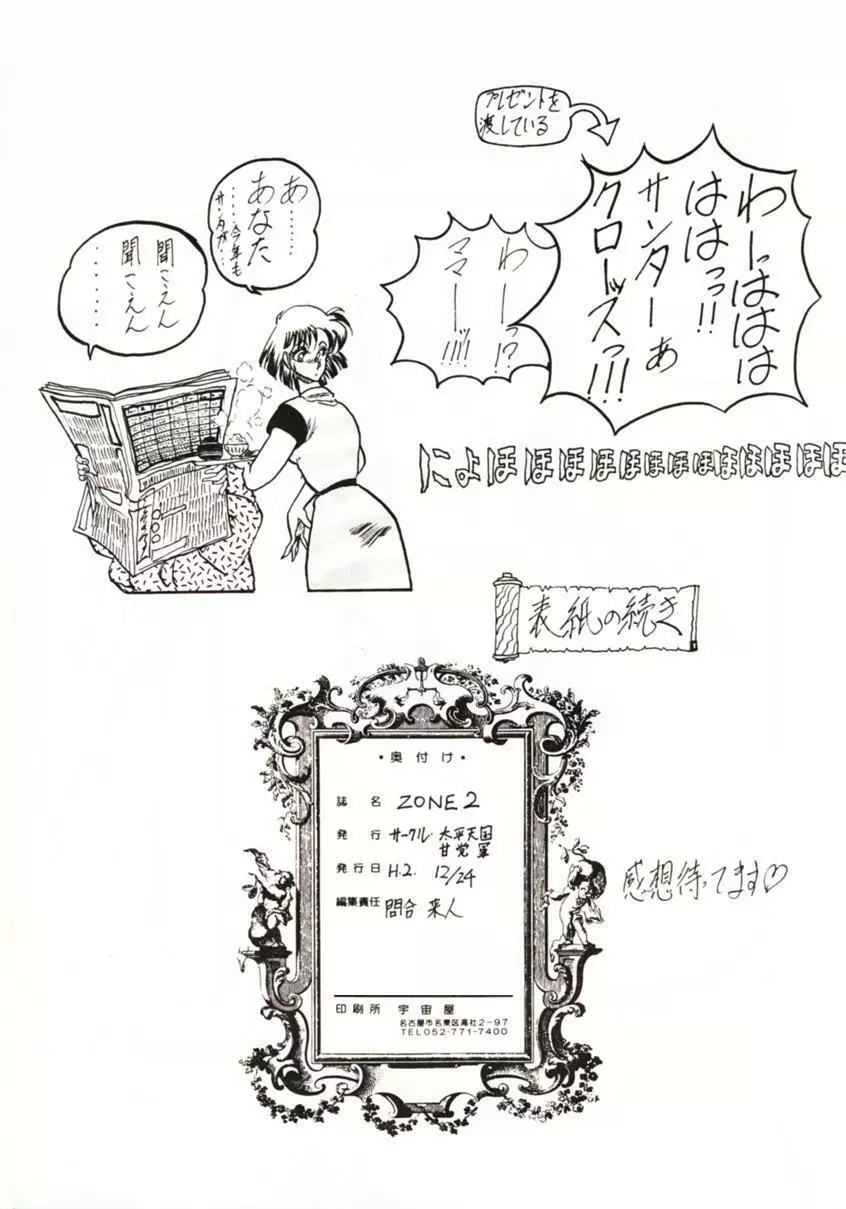 プレゼントを
渡している
わーっははは
ははっっ!!
サンターぁ
クローッスっ!!!
わーっ!?
ママーッ!!!!
あ……
あなた
……今年も
サンタが…
聞こえん
聞こえん
……
にょほほほほほほほほほほほほ
表紙の続き
・奥付け・
誌名 ZONE2
発行 サークル・太平天国
甘党軍
発行日 H.2. 12/24
編集責任 問合 来人
印刷所 宇宙屋
名古屋市名東区高社2-97
TEL052-771-7400
感想待ってます♡